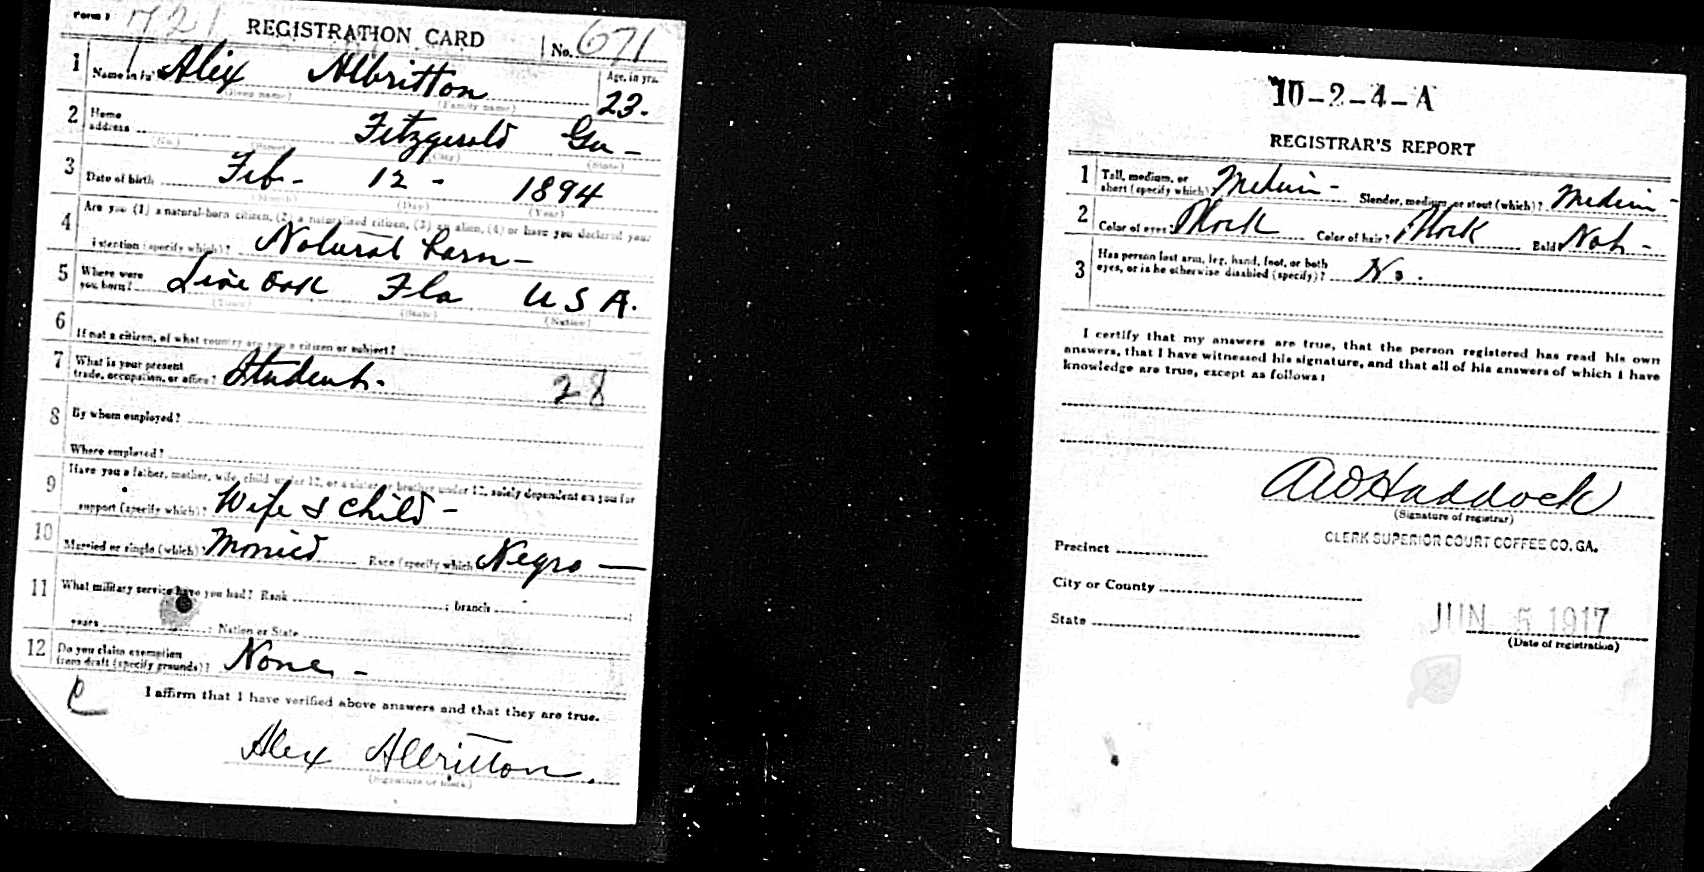 Form 1 721 REGISTRATION CARD No. 671
1 Name in full Alex Albritton Age, in yrs.
(Given name) (Family name) 23.
2 Home address Fitzgerald Ga -
(No.) (Street) (City) (State)
3 Date of birth Feb - 12 - 1894
(Month) (Day) (Year)
4 Are you (1) a natural-born citizen, (2) a naturalized citizen, (3) an alien, (4) or have you declared your
intention (specify which)? Natural born -
5 Where were you born? Live Oak Fla U S A.
(Town) (State) (Nation)
6 If not a citizen, of what country are you a citizen or subject?
7 What is your present trade, occupation, or office? Student - 28
8 By whom employed?
Where employed?
9 Have you a father, mother, wife, child under 12, or a sister or brother under 12, solely dependent on you for
support (specify which)? Wife & child -
10 Married or single (which) Married Race (specify which) Negro —
11 What military service have you had? Rank ; branch ;
years ; Nation or State
12 Do you claim exemption from draft (specify grounds)? None -
I affirm that I have verified above answers and that they are true.
Alex Albritton.
(Signature or mark)
10-2-4-A
REGISTRAR'S REPORT
1 Tall, medium, or short (specify which) Medium - Slender, medium, or stout (which)? Medium -
2 Color of eyes? Black Color of hair? Black Bald Not -
3 Has person lost arm, leg, hand, foot, or both
eyes, or is he otherwise disabled (specify)? No.
I certify that my answers are true, that the person registered has read his own
answers, that I have witnessed his signature, and that all of his answers of which I have
knowledge are true, except as follows:
A W Haddock
(Signature of registrar)
CLERK SUPERIOR COURT COFFEE CO. GA.
Precinct
City or County
State
JUN 5 1917
(Date of registration)